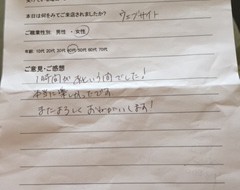 本日は何をみてご来店されましたか? ウェブサイト
ご職業性別 男性 ・ 女性
年齢 10代 20代 30代 40代 50代 60代 70代
ご意見・ご感想
1時間があっという間でした!
本当に楽しかったです
またよろしくおねがいします!